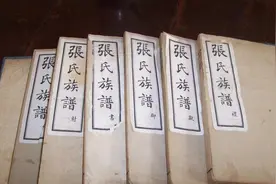 張氏族譜 射
張氏族譜 書
張氏族譜 御
張氏族譜
張氏族譜 禮